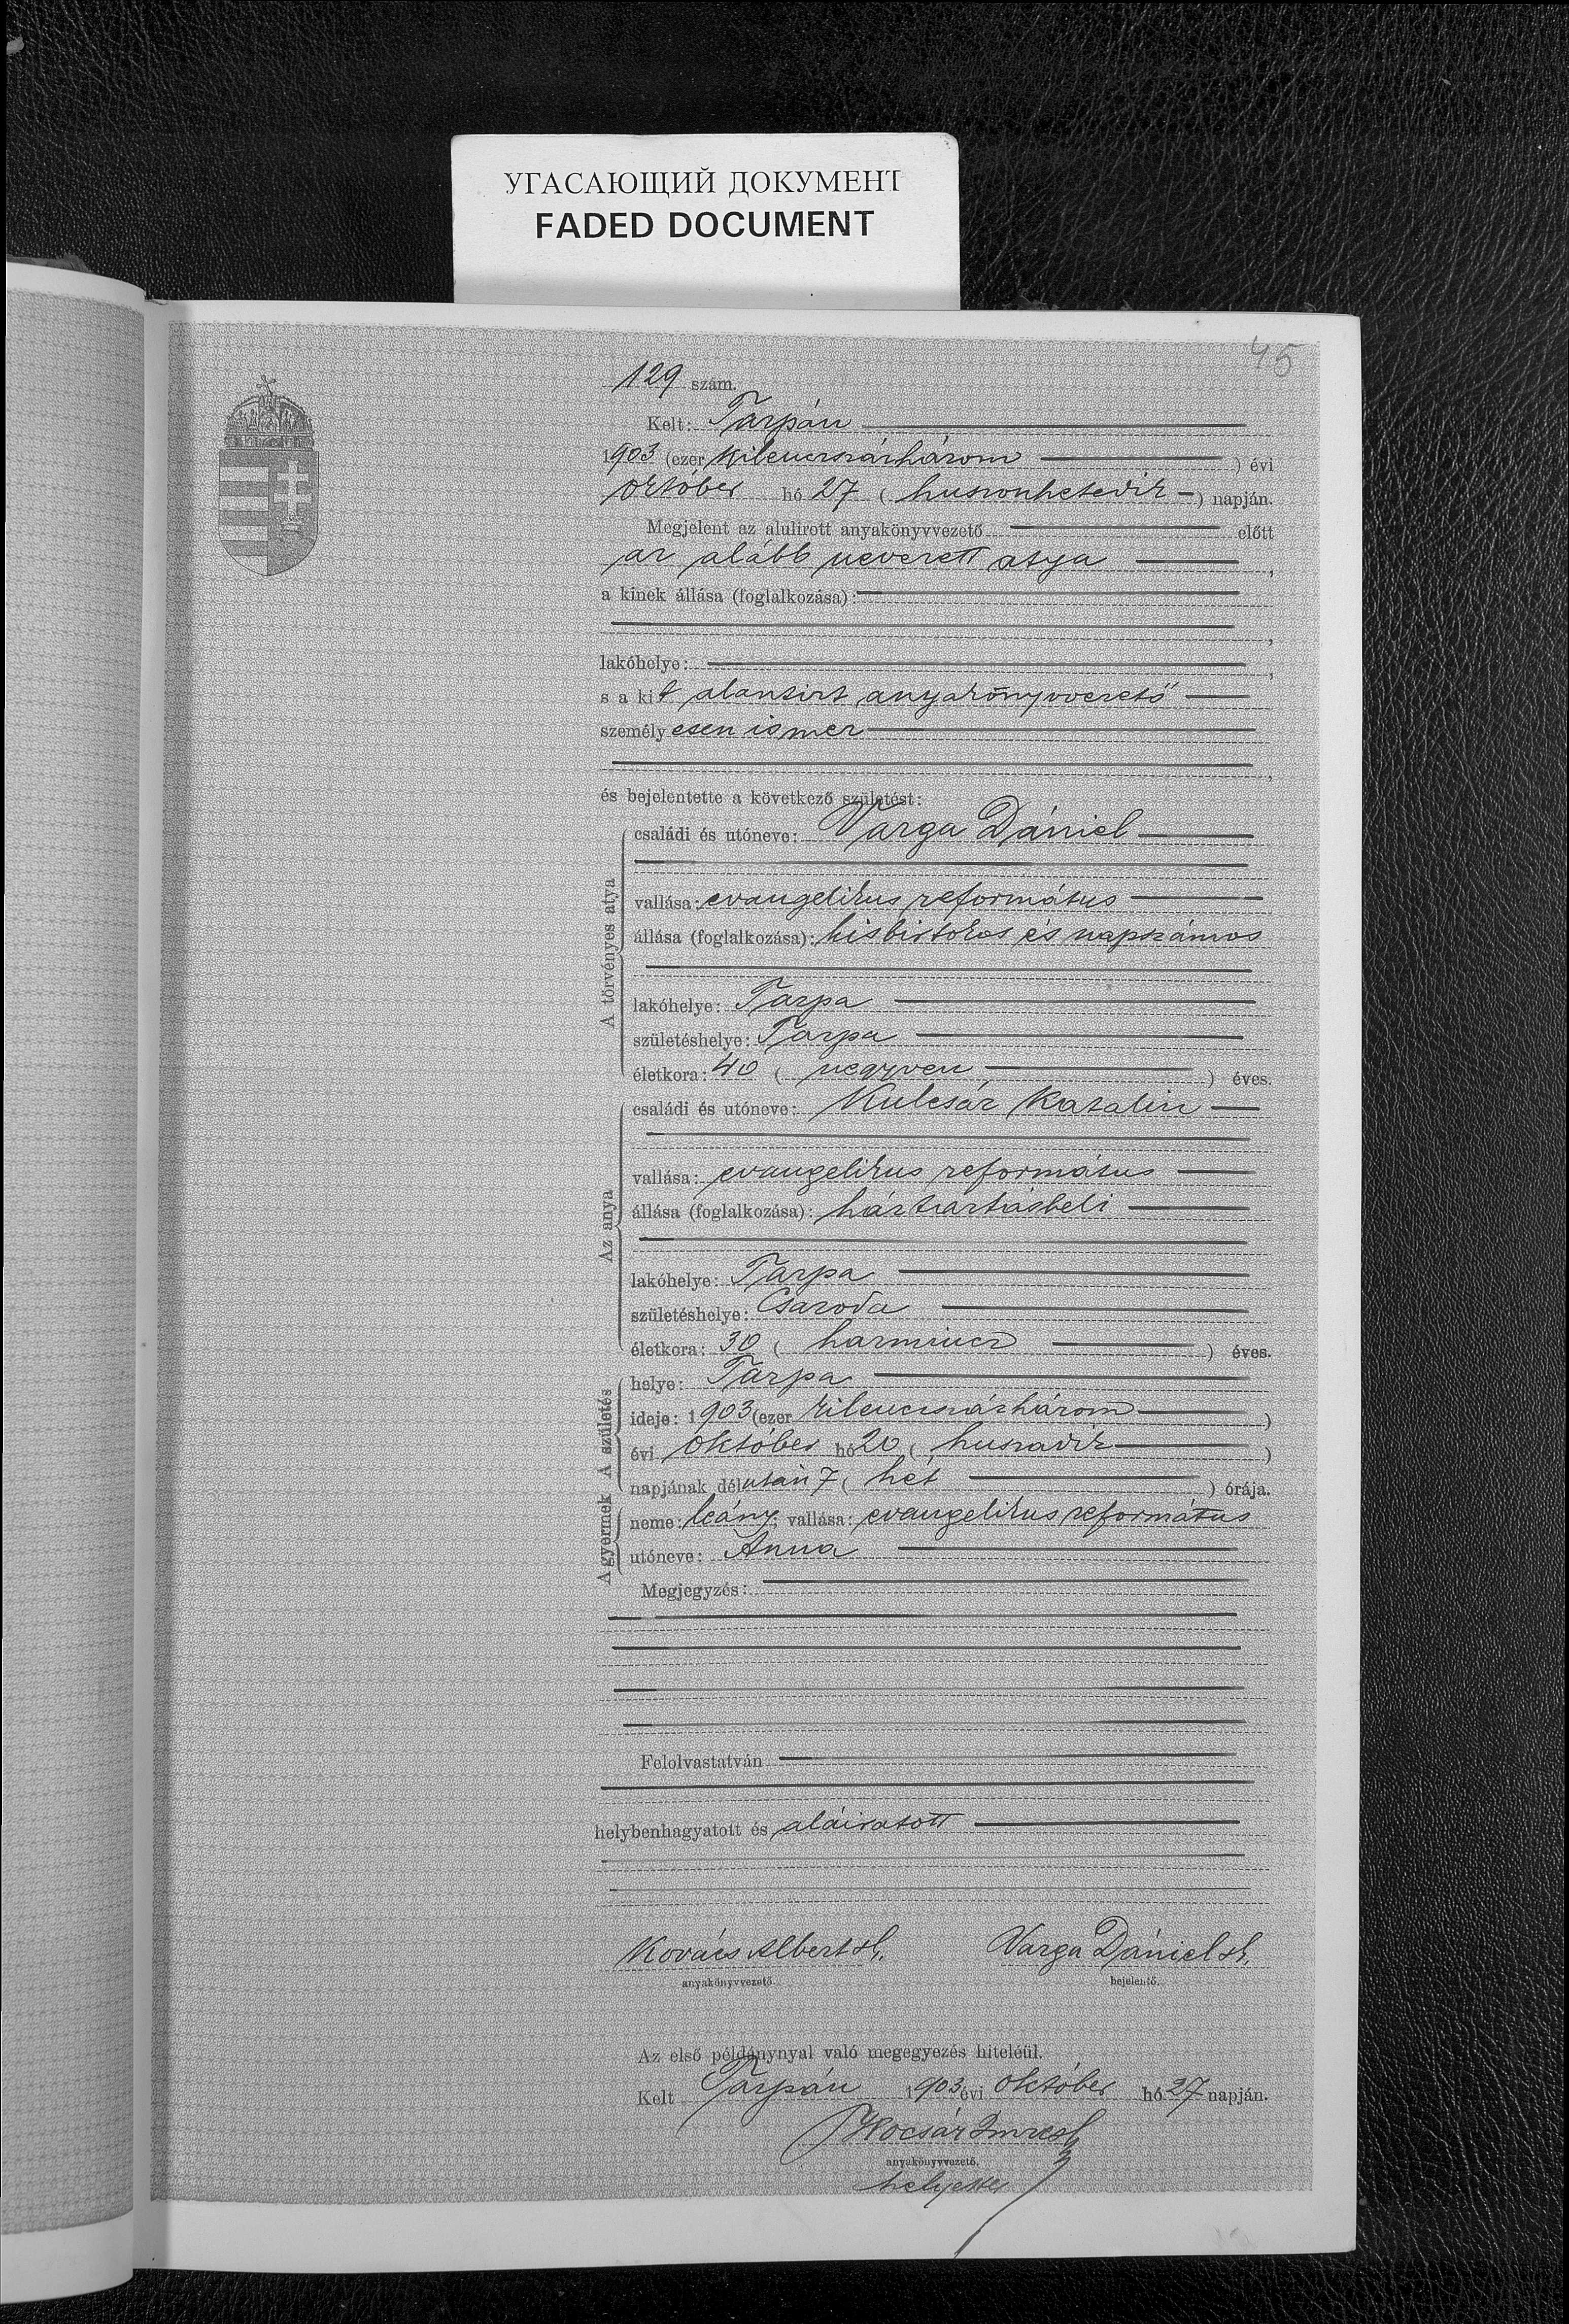 УГАСАЮЩИЙ ДОКУМЕНТ
FADED DOCUMENT
45
129 szám.
Kelt: Tarpán
1903 (ezer kilencszázhárom) évi
október hó 27 (huszonhetedik) napján.
Megjelent az alulirott anyakönyvvezető előtt
az alább nevezett atya,
a kinek állása (foglalkozása):
,
lakóhelye: ,
s a kit alantirt anyakönyvvezető
személyesen ismer
,
és bejelentette a következő születést:
A törvényes atya
családi és utóneve: Varga Dániel
vallása: evangelikus református
állása (foglalkozása): kisbirtokos és napszámos
lakóhelye: Tarpa
születéshelye: Tarpa
életkora: 40 (negyven) éves.
Az anya
családi és utóneve: Kulcsár Katalin
vallása: evangelikus református
állása (foglalkozása): háztartásbeli
lakóhelye: Tarpa
születéshelye: Csaroda
életkora: 30 (harmincz) éves.
A születés
helye: Tarpa
ideje: 1903 (ezer kilencszázhárom)
évi október hó 20 (huszadik)
napjának délután 7 (hét) órája.
A gyermek
neme: leány; vallása: evangelikus református
utóneve: Anna
Megjegyzés:
Felolvastatván
helybenhagyatott és aláiratott
Kovács Albert sk. Varga Dániel sk.
anyakönyvvezető bejelentő.
Az első példánynyal való megegyezés hiteléül.
Kelt Tarpán 1903 évi október hó 27 napján.
Imre
anyakönyvvezető.
helyettes